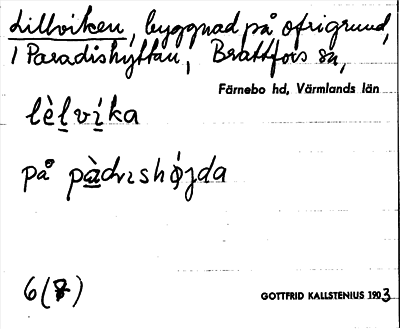 Lillviken, byggnad på ofrigrund,
i Paradishyttan, Brattfors sn,
Färnebo hd, Värmlands län
lèl víka
på pàdɩshǿjda
6(7)
GOTTFRID KALLSTENIUS 1903